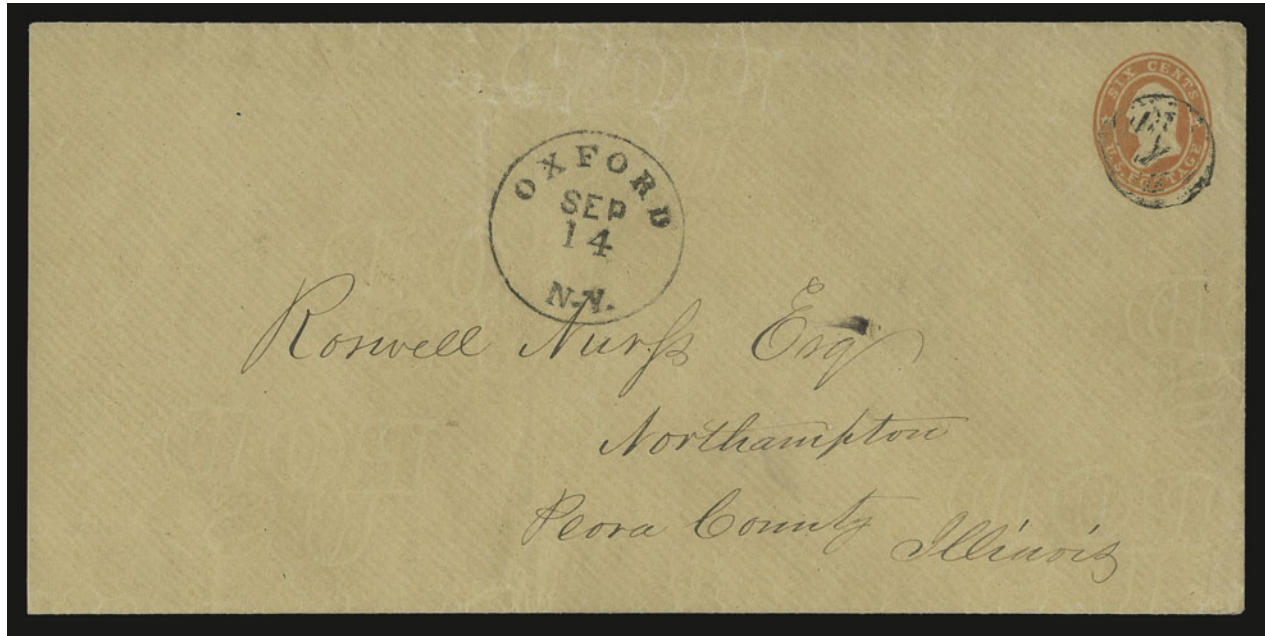 SIX CENTS
U.S. POSTAGE
OXFORD
SEP
14
N.Y.
Roswell Nurſs Esq
Northampton
Peora County Illinois